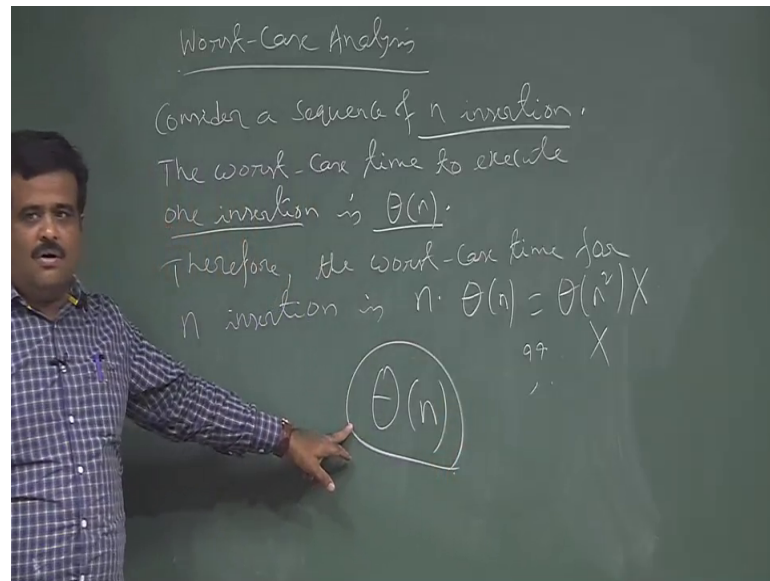 Worst-Case Analysis
Consider a sequence of n insertion.
The worst-case time to execute
one insertion is Θ(n).
Therefore, the worst-case time for
n insertion is n. Θ(n) = Θ(n²) X
X
Θ(n)